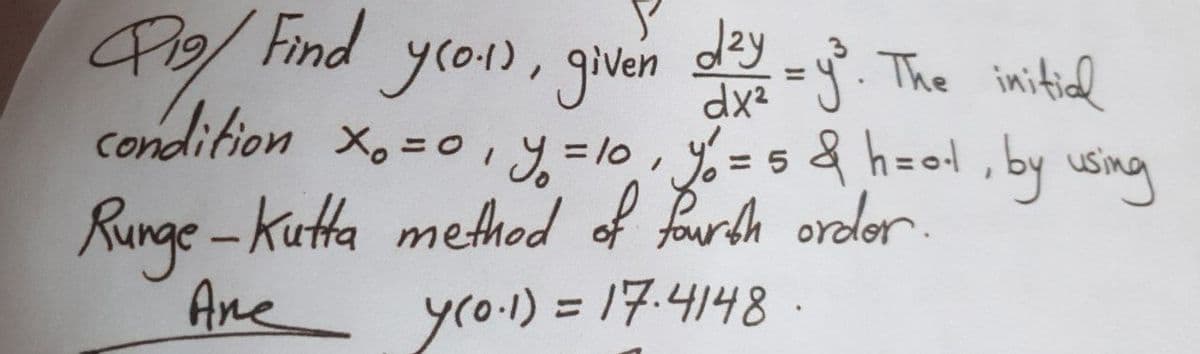 Q19/ Find y(0.1), given d2y/dx² = y³. The initial
condition x₀=0, y₀=10, y₀′=5 & h=0.1, by using
Runge-Kutta method of fourth order.
Ane y(0.1) = 17.4148.